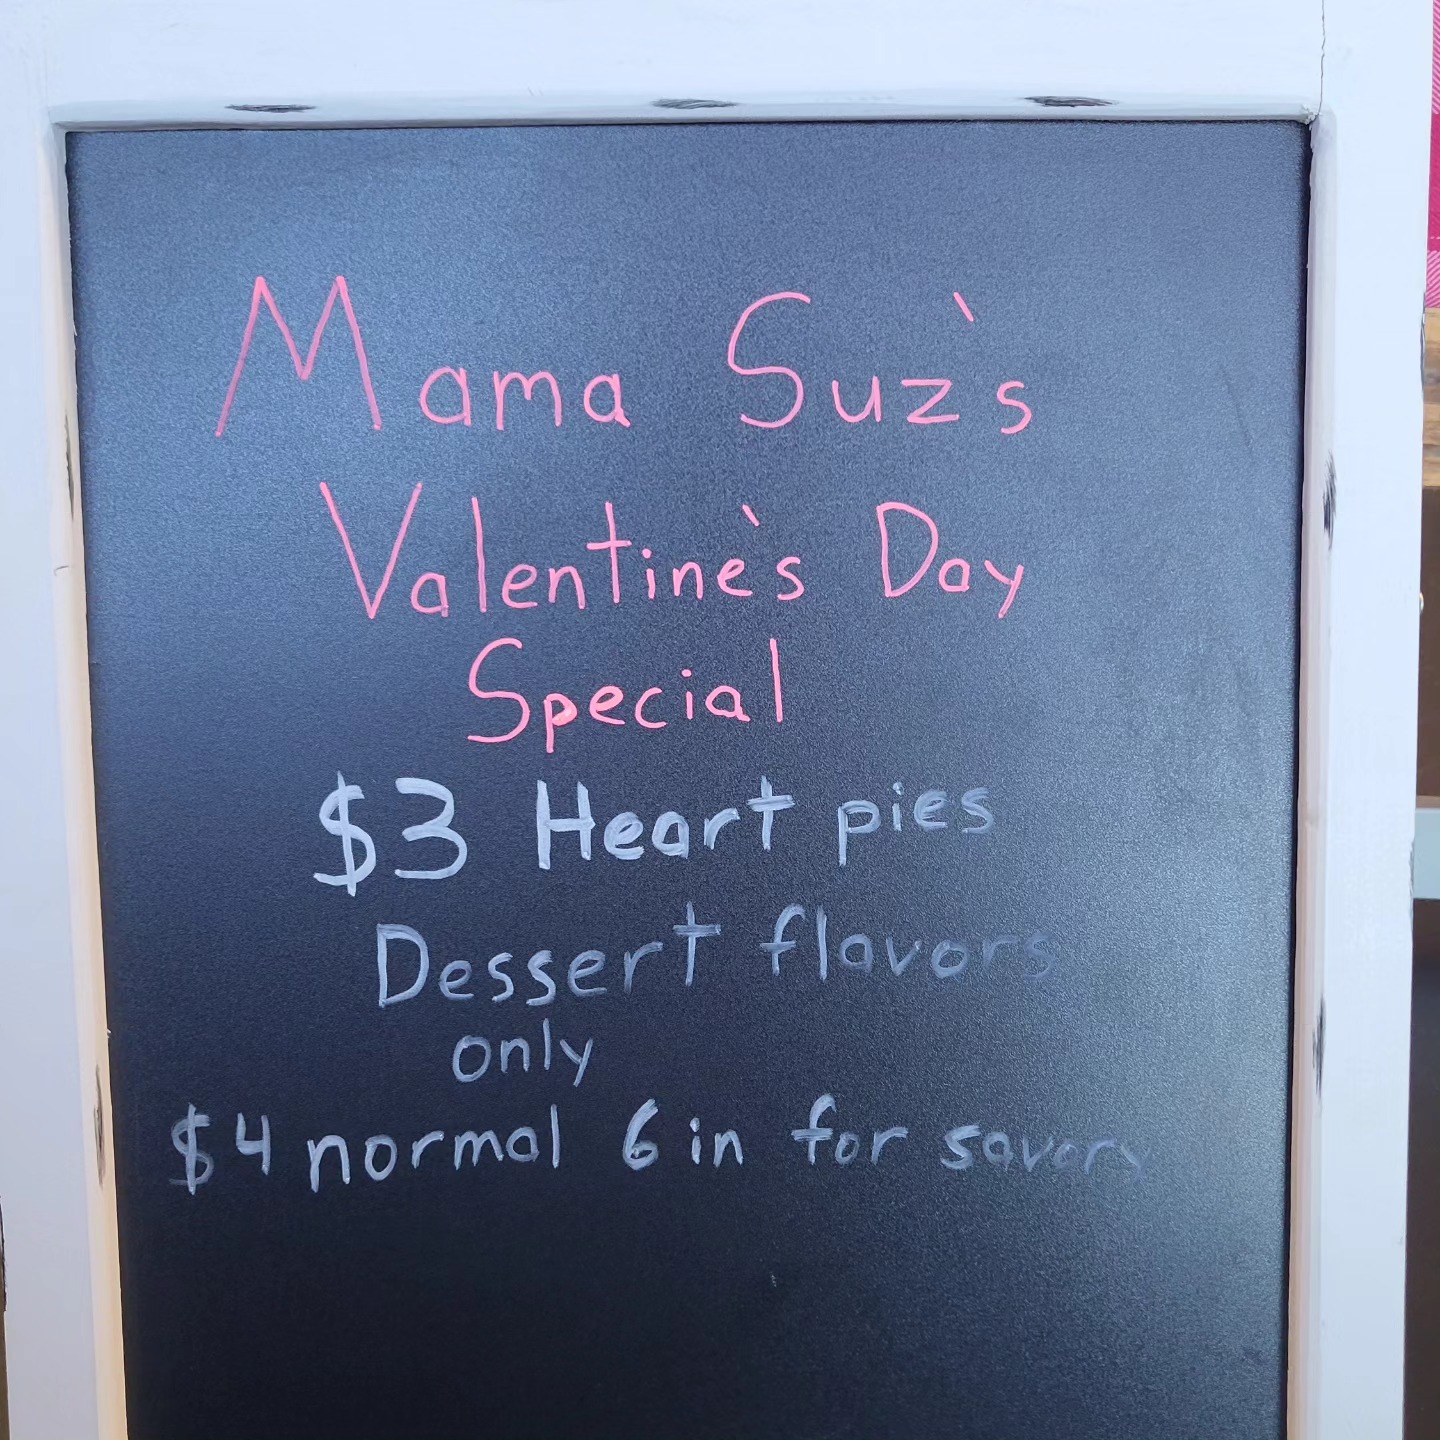 Mama Suz`s
Valentine`s Day
Special
$3 Heart pies
Dessert flavors
only
$4 normal 6 in for savory